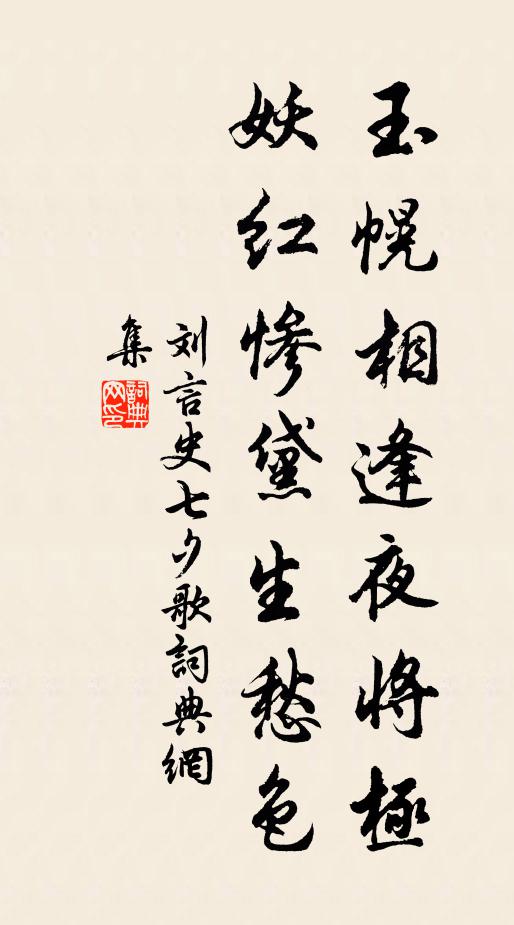 玉幌相逢夜将極
妖红惨黛生愁色
刘言史七夕歌詞典網
集
詞典
网印